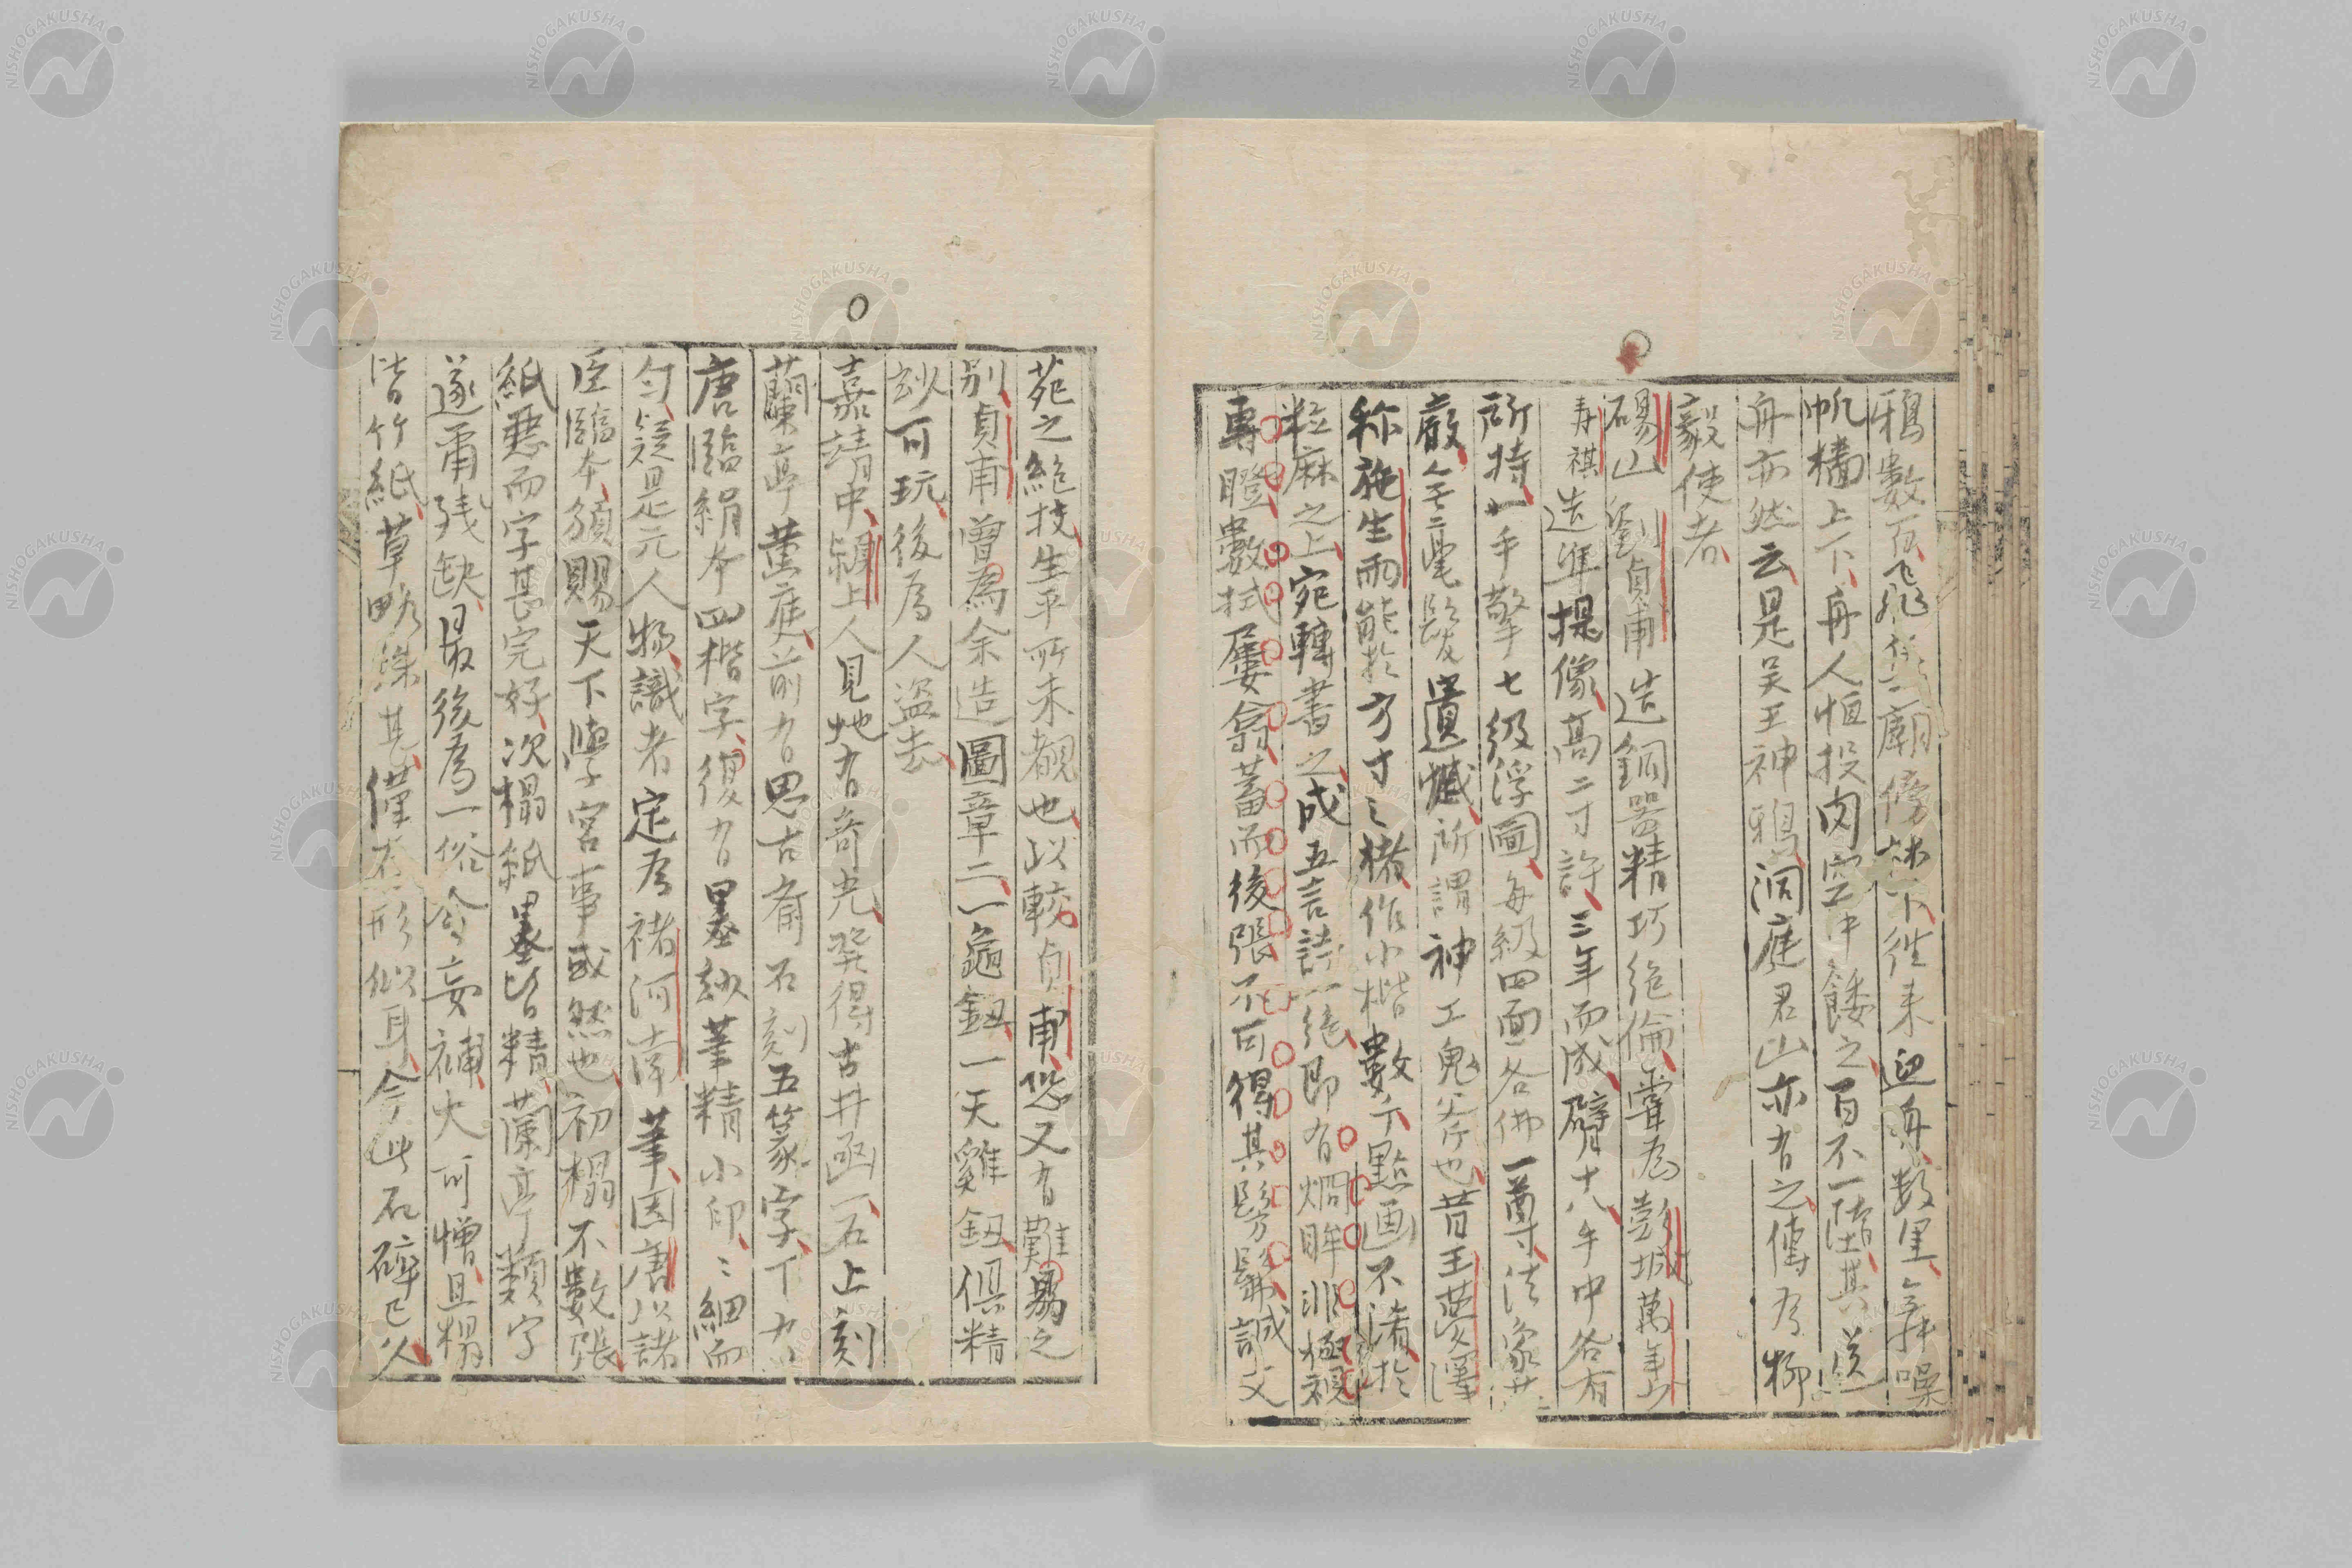 鴉數百飛集廟傍林下往来迎舟數里舞噪
帆檣上下舟人恒投肉空中餧之百不一墮其送
舟亦然云是吴王神鴉洞庭君山亦有之傳為柳
毅使者
碭山劉貞甫造銅器精巧絶倫嘗為彭城萬年少
寿祺造準提像髙二寸許三年而成臂十八手中各有
所持一手擎七級浮圖每級四面面各佛一尊法象
嚴全毫髮遺憾所謂神工鬼斧也昔王夢澤
称施生雨能於方寸之楮作小楷數千點画不淆於
粒麻之上宛轉書之成五言詩一絶即有烱眸非極視
専瞪數拭屢翕蓄而後張不可得其髣髴誠文
苑之絶技生平所未覩也以較貞甫恐又有難易之
别貞甫曽為余造圖章二一龜鈕一天雞鈕俱精
玅可玩後為人盜去
嘉靖中潁上人見地有奇光發得古井函一石上刻
蘭亭黄庭前有思古齋石刻五篆字下有
唐臨絹本四楷字復有墨玅筆精小印印細而
匀疑是元人物識者定為褚河南筆因唐以諸
臣臨本頒賜天下學宫事或然也初榻不數張
紙惡而字甚完好次榻紙墨皆精蘭亭類字
遂甫殘缺最後為一俗令妄補大可憎且榻
皆竹紙草略殊甚僅存形似耳今此石碎已久